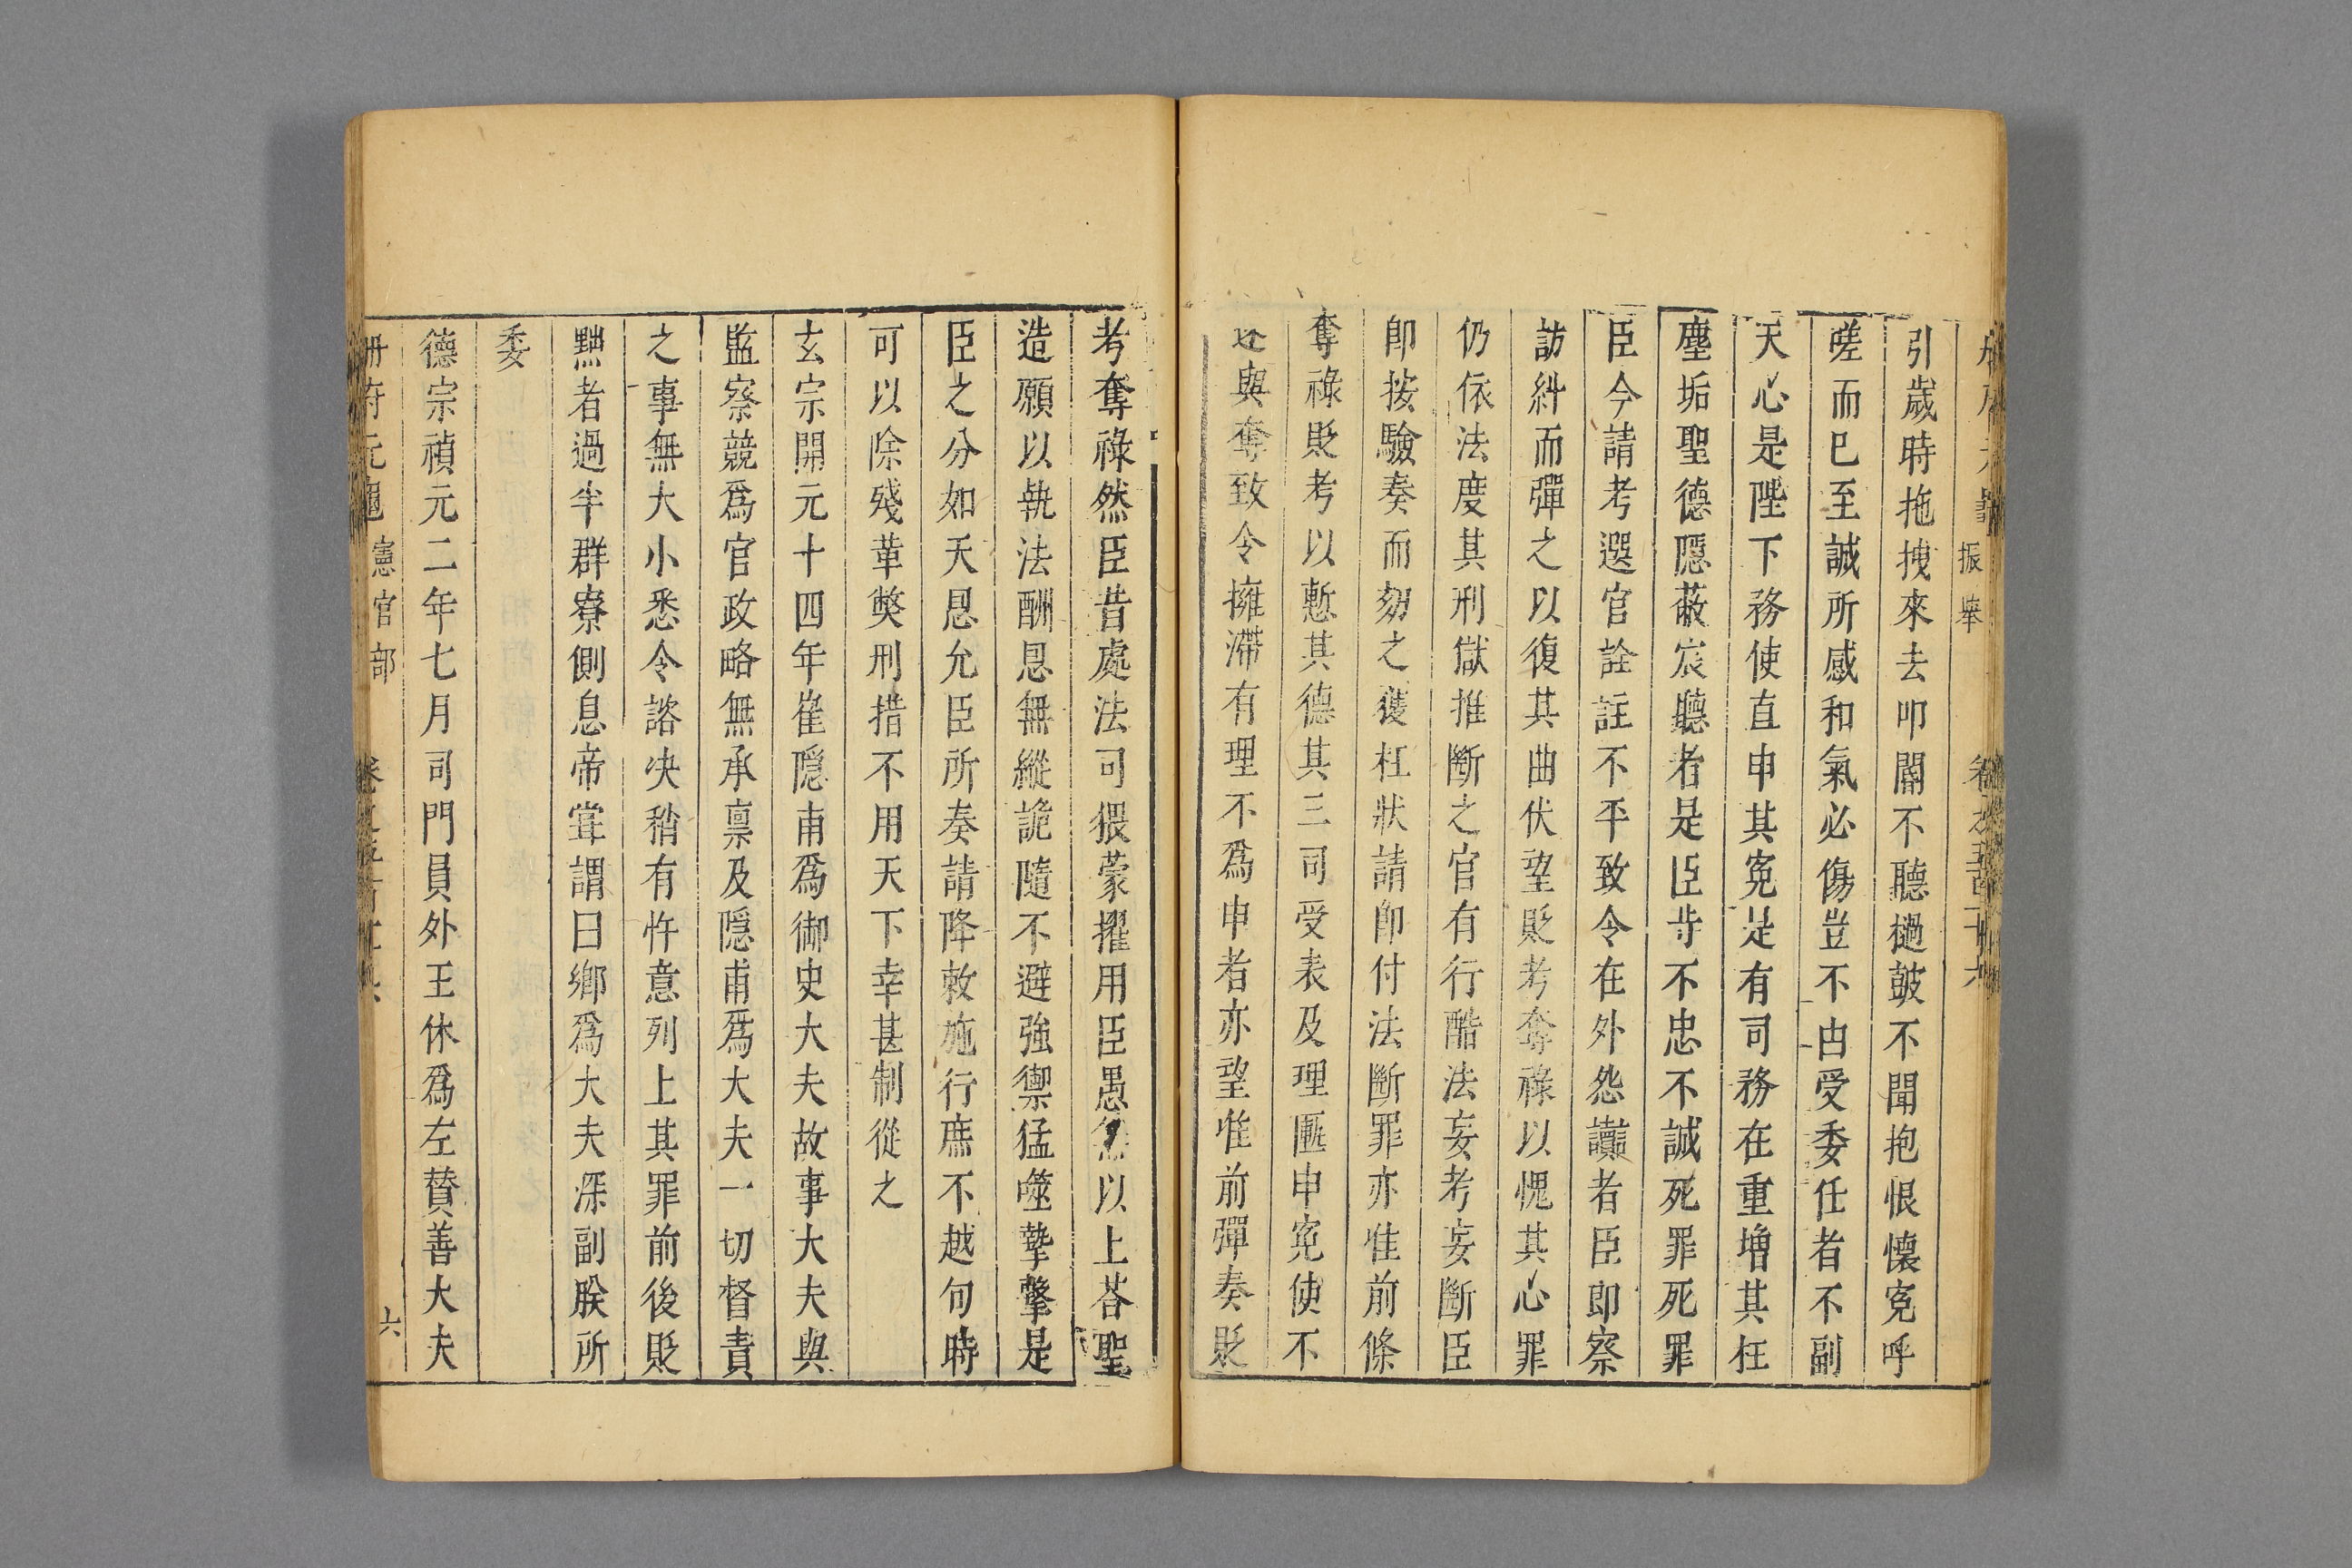 振舉
引歲時拖拽來去叩閽不聽撾皷不聞抱恨懷寃呼
嗟而巳至誠所感和氣必傷豈不由受委任者不副
天心是陛下務使直申其寃是有司務在重增其枉
塵垢聖德隱蔽宸聽者是臣等不忠不誠死罪死罪
臣今請考選官詮註不平致令在外怨讟者臣即察
訪糾而彈之以復其曲伏望貶考奪祿以愧其心罪
仍依法度其刑獄推斷之官有行酷法妄考妄斷臣
即按驗奏而劾之獲枉狀請即付法斷罪亦惟前條
奪祿貶考以慙其德其三司受表及理匭申寃使不
與奪致令擁滯有理不爲申者亦望惟前彈奏貶
考奪祿然臣昔處法司猥蒙擢用臣愚無以上荅聖
造願以執法酬恩無縱詭隨不避強禦猛噬摯擊是
臣之分如天恩允臣所奏請降敕施行庶不越句時
可以除殘革獘刑措不用天下幸甚制從之
玄宗開元十四年崔隱甫爲御史大夫故事大夫與
監察競爲官政略無承禀及隱甫爲大夫一切督責
之事無大小悉令諮决稍有忤意列上其罪前後貶
黜者過半群寮側息帝嘗謂曰鄉爲大夫深副朕所
委
德宗禎元二年七月司門員外王休爲左賛善大夫
冊府元龜 憲官部 六